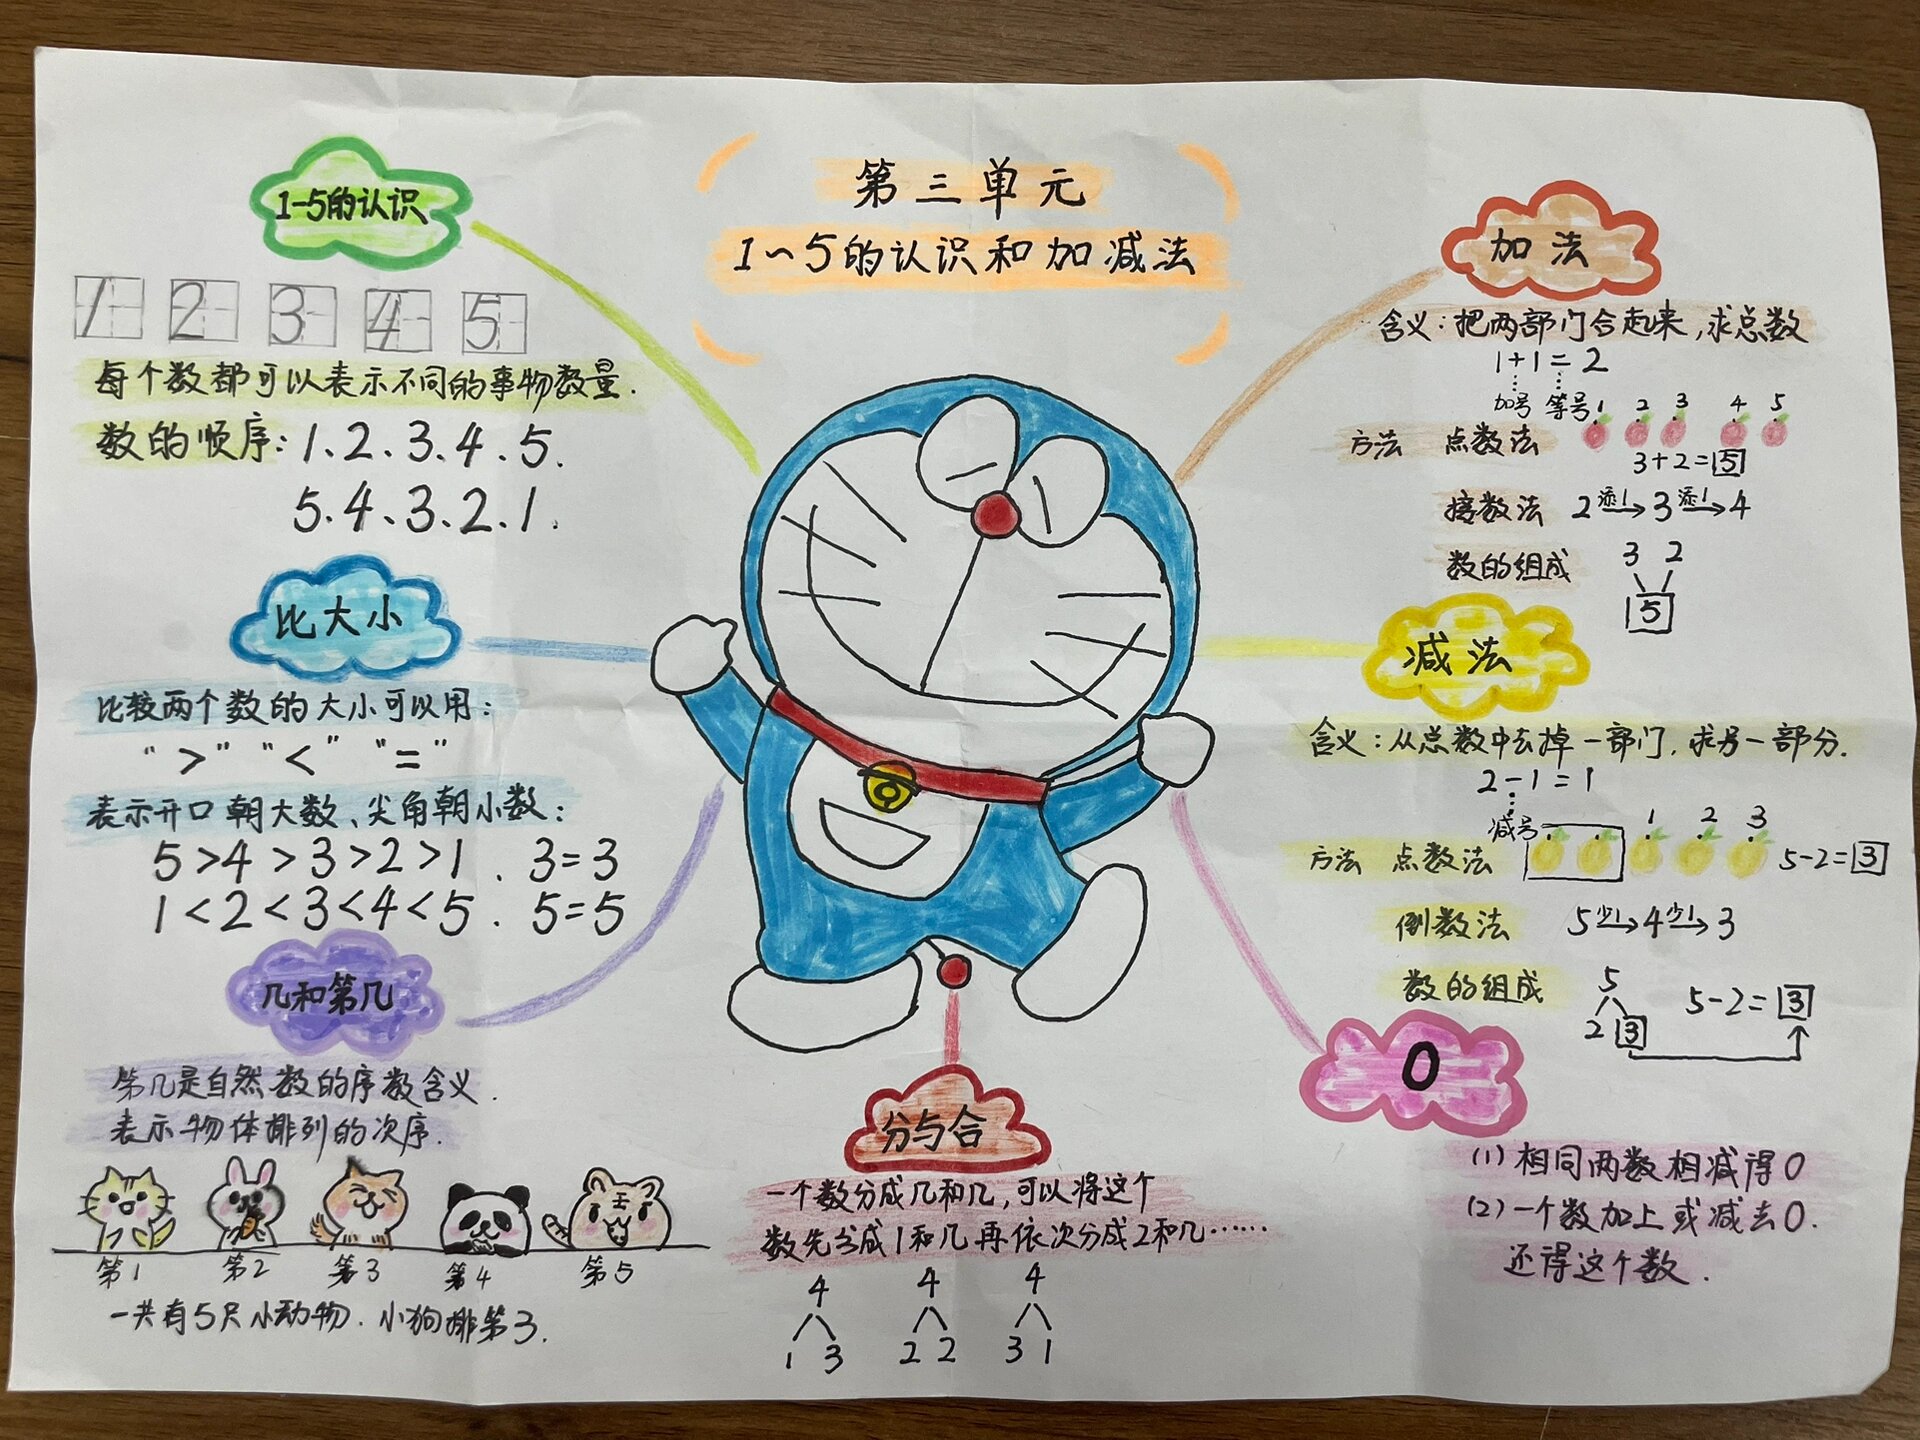 第三单元
1~5的认识和加减法
1-5的认识
1 2 3 4 5
每个数都可以表示不同的事物数量.
数的顺序:1、2、3、4、5.
5、4、3、2、1.
比大小
比较两个数的大小可以用:
“>” “<” “=”
表示开口朝大数、尖角朝小数:
5>4>3>2>1. 3=3
1<2<3<4<5. 5=5
几和第几
第几是自然数的序数含义.
表示物体排列的次序.
第1 第2 第3 第4 第5
一共有5只小动物.小狗排第3.
分与合
一个数分成几和几,可以将这个
数先分成1和几再依次分成2和几……
4 4 4
1 3 2 2 3 1
加法
含义:把两部门合起来,求总数
1+1=2
加号 等号
1 2 3 4 5
方法 点数法
3+2=5
接数法 2 添1→ 3 添1→ 4
数的组成 3 2
5
减法
含义:从总数中去掉一部门,求另一部分.
2-1=1
减号
1 2 3
方法 点数法 5-2=3
倒数法 5 少1→ 4 少1→ 3
数的组成 5
2 3
5-2=3
0
(1)相同两数相减得0
(2)一个数加上或减去0.
还得这个数.